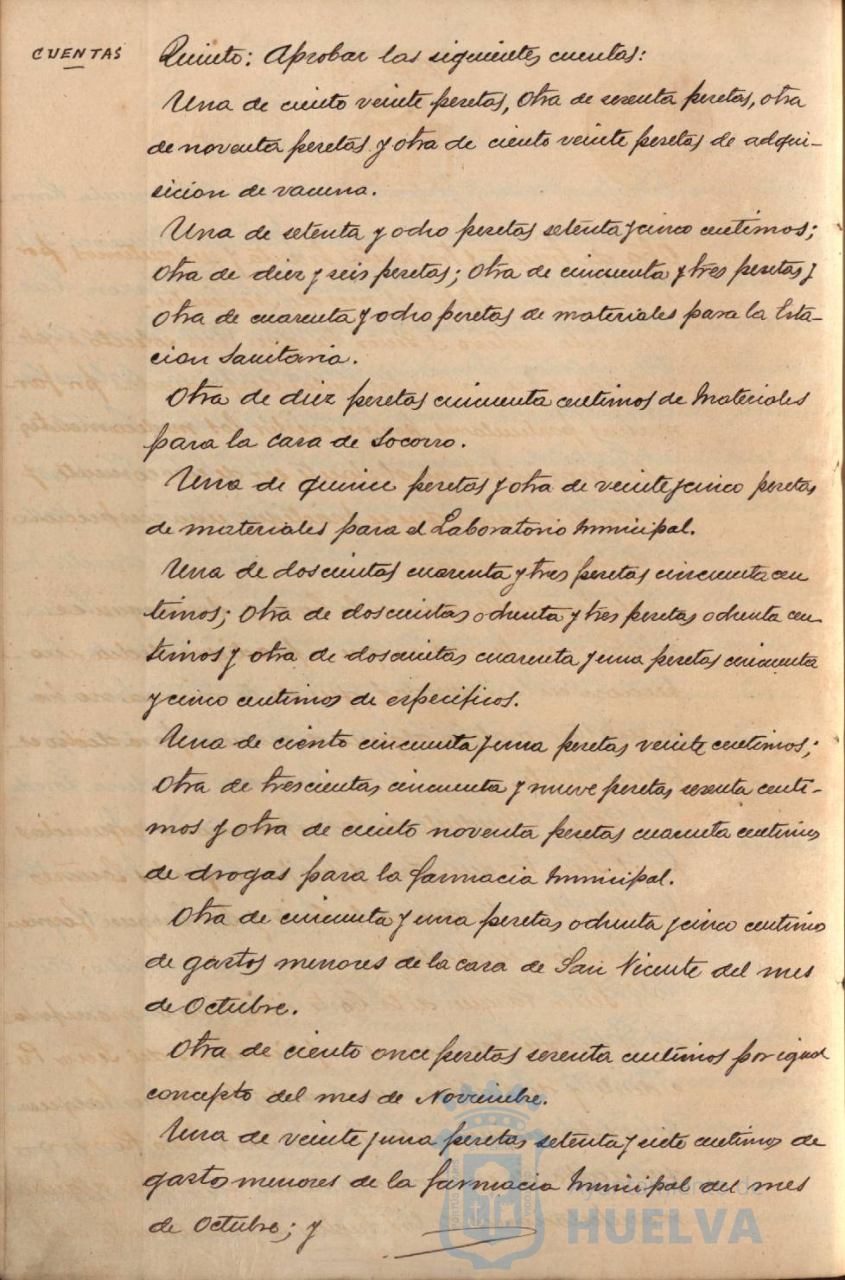 CUENTAS
Quinto: Aprobar las siguientes cuentas:
Una de ciento veinte pesetas, otra de sesenta pesetas, otra
de noventa pesetas y otra de ciento veinte pesetas de adqui-
sicion de vacuna.
Una de setenta y ocho pesetas setenta y cinco centimos;
otra de diez y seis pesetas; otra de cincuenta y tres pesetas y
otra de cuarenta y ocho pesetas de materiales para la Esta-
cion Sanitaria.
Otra de diez pesetas cincuenta centimos de Materiales
para la casa de Socorro.
Una de quince pesetas y otra de veinte y cinco pesetas
de materiales para el Laboratorio Municipal.
Una de doscientas cuarenta y tres pesetas cincuenta cen
timos; otra de doscientas ochenta y tres pesetas ochenta cen-
timos y otra de doscientas cuarenta y una pesetas cincuenta
y cinco centimos de especificos.
Una de ciento cincuenta y una pesetas veinte centimos;
otra de trescientas cincuenta y nueve pesetas sesenta centi-
mos y otra de ciento noventa pesetas cuarenta centimos
de drogas para la farmacia Municipal.
Otra de cincuenta y una pesetas ochenta y cinco centimo
de gastos menores de la casa de San Vicente del mes
de Octubre.
Otra de ciento once pesetas sesenta centimos por igual
concepto del mes de Noviembre.
Una de veinte y una pesetas setenta y siete centimos de
gasto menores de la farmacia Municipal del mes
de Octubre; y
HUELVA